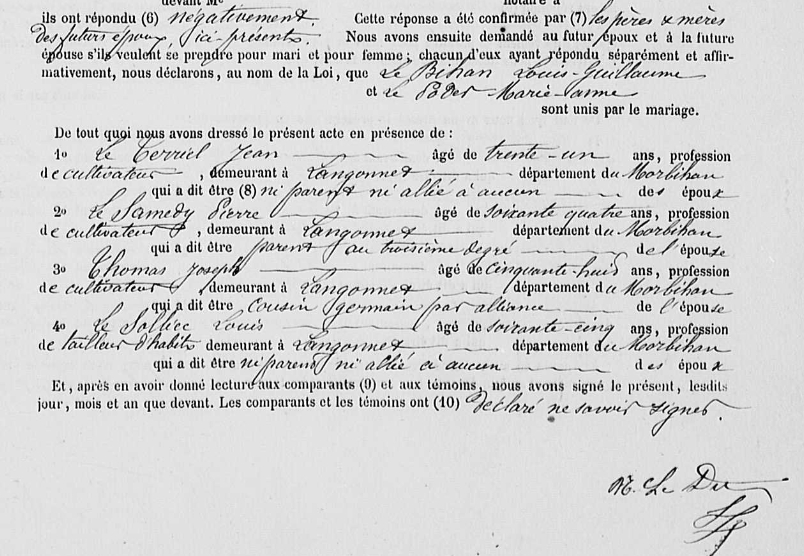 devant Mᵉ notaire à
ils ont répondu (6) négativement. Cette réponse a été confirmée par (7) les pères & mères
des futurs époux, ici présents. Nous avons ensuite demandé au futur époux et à la future
épouse s'ils veulent se prendre pour mari et pour femme; chacun d'eux ayant répondu séparément et affir-
mativement, nous déclarons, au nom de la Loi, que Le Bihan Louis-Guillaume
et Le Marie-Anne
sont unis par le mariage.
De tout quoi nous avons dressé le présent acte en présence de :
1o Le Jean âgé de trente-un ans, profession
de cultivateur, demeurant à Langonnet département du Morbihan
qui a dit être (8) ni parent ni allié à aucun des époux
2o Le Samedy Pierre âgé de soixante quatre ans, profession
de cultivateur, demeurant à Langonnet département du Morbihan
qui a dit être parent au troisième degré de l'épouse
3o Thomas Joseph âgé de cinquante-huit ans, profession
de cultivateur demeurant à Langonnet département du Morbihan
qui a dit être cousin germain par alliance de l'épouse
4o Le Louis âgé de soixante-cinq ans, profession
de tailleur d'habits demeurant à Langonnet département du Morbihan
qui a dit être ni parent ni allié à aucun des époux
Et, après en avoir donné lecture aux comparants (9) et aux témoins, nous avons signé le présent, lesdits
jour, mois et an que devant. Les comparants et les témoins ont (10) déclaré ne savoir signer.
Le Du